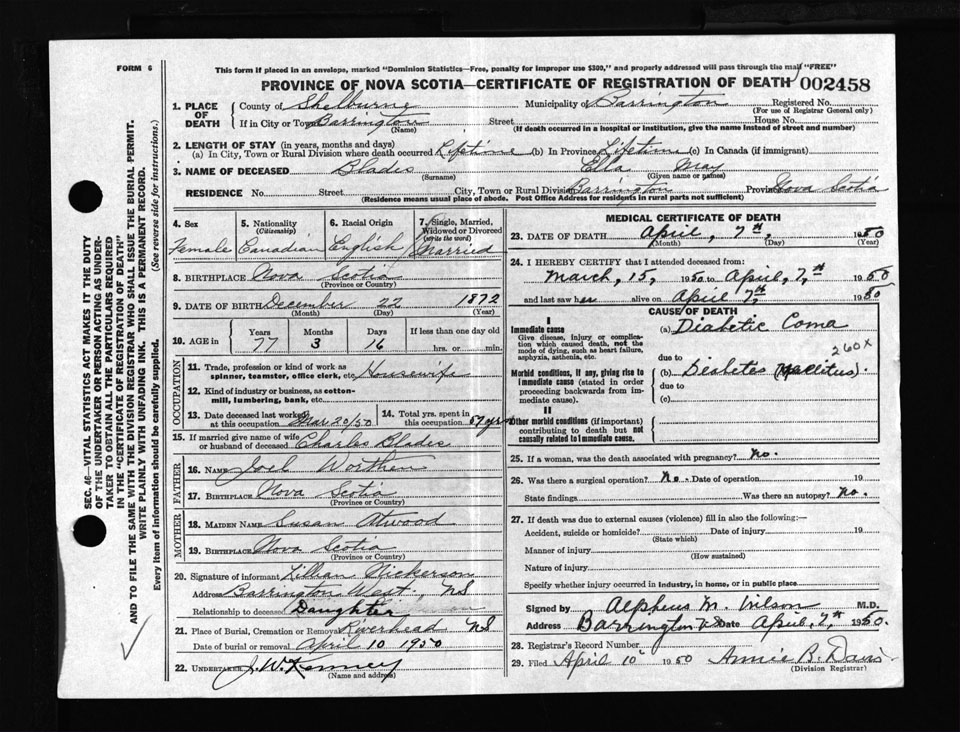 FORM 6
This form if placed in an envelope, marked "Dominion Statistics—Free, penalty for improper use $300," and properly addressed will pass through the mail "FREE"
PROVINCE OF NOVA SCOTIA—CERTIFICATE OF REGISTRATION OF DEATH 002458
1. PLACE OF DEATH
County of Shelburne Municipality of Barrington Registered No.
(For use of Registrar General only)
If in City or Town Barrington Street House No.
(Name) (If death occurred in a hospital or institution, give the name instead of street and number)
2. LENGTH OF STAY (in years, months and days)
(a) In City, Town or Rural Division where death occurred Lifetime (b) In Province Lifetime (c) In Canada (if immigrant)
3. NAME OF DECEASED Blades Ella May
(Surname) (Given name or names)
RESIDENCE No. Street City, Town or Rural Division Barrington Province Nova Scotia
(Residence means usual place of abode. Post Office Address for residents in rural parts not sufficient)
4. Sex Female
5. Nationality (Citizenship) Canadian
6. Racial Origin English
7. Single, Married, Widowed or Divorced (write the word) Married
8. BIRTHPLACE Nova Scotia
(Province or Country)
9. DATE OF BIRTH December 22 1872
(Month) (Day) (Year)
10. AGE in Years Months Days If less than one day old
77 3 16 hrs. or min.
OCCUPATION
11. Trade, profession or kind of work as spinner, teamster, office clerk, etc. Housewife
12. Kind of industry or business, as cotton-mill, lumbering, bank, etc.
13. Date deceased last worked at this occupation Mar 20/50
14. Total yrs. spent in this occupation 57 yrs
15. If married give name of wife or husband of deceased Charles Blades
FATHER
16. NAME Joel Worthen
17. BIRTHPLACE Nova Scotia
(Province or Country)
MOTHER
18. MAIDEN NAME Susan Atwood
19. BIRTHPLACE Nova Scotia
(Province or Country)
20. Signature of informant Lillian Nickerson
Address Barrington West, NS
Relationship to deceased Daughter
21. Place of Burial, Cremation or Removal Riverhead NS
Date of burial or removal April 10 1950
22. UNDERTAKER J. W. Kenney
(Name and address)
MEDICAL CERTIFICATE OF DEATH
23. DATE OF DEATH April, 7th, 1950
(Month) (Day) (Year)
24. I HEREBY CERTIFY that I attended deceased from:
March, 15, 1950 to April, 7th 1950
and last saw her alive on April 7th, 1950
CAUSE OF DEATH
I
Immediate cause (a) Diabetic Coma
Give disease, injury or complication which caused death, not the mode of dying, such as heart failure, asphyxia, asthenia, etc.
260X
due to
Morbid conditions, if any, giving rise to immediate cause (stated in order proceeding backwards from immediate cause).
(b) Diabetes (Mellitus).
due to
(c)
II
Other morbid conditions (if important) contributing to death but not causally related to immediate cause.
25. If a woman, was the death associated with pregnancy? No.
26. Was there a surgical operation? No. Date of operation 19
State findings Was there an autopsy? No.
27. If death was due to external causes (violence) fill in also the following:—
Accident, suicide or homicide? Date of injury 19
(State which)
Manner of injury
(How sustained)
Nature of injury
Specify whether injury occurred in industry, in home, or in public place
Signed by Alpheus M. Wilson M.D.
Address Barrington NS Date April, 7th 1950.
28. Registrar's Record Number
29. Filed April 10 1950 Annie B. Davis
(Division Registrar)
SEC. 46—VITAL STATISTICS ACT MAKES IT THE DUTY
OF THE UNDERTAKER OR PERSON ACTING AS UNDER-
TAKER TO OBTAIN ALL THE PARTICULARS REQUIRED
IN THE "CERTIFICATE OF REGISTRATION OF DEATH"
AND TO FILE THE SAME WITH THE DIVISION REGISTRAR WHO SHALL ISSUE THE BURIAL PERMIT.
WRITE PLAINLY WITH UNFADING INK. THIS IS A PERMANENT RECORD.
Every item of Information should be carefully supplied. (See reverse side for instructions.)